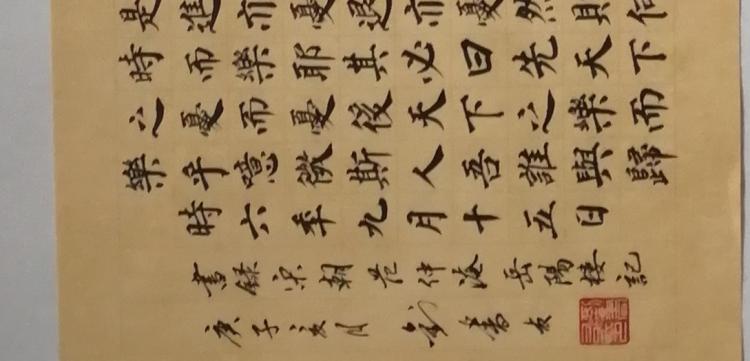 是進亦憂退亦憂然則何
時而樂耶其必曰先天下
之憂而憂後天下之樂而
樂乎噫微斯人吾誰與歸
時六秊九月十五日
書錄宋朝范仲淹岳陽樓記
庚子亥月